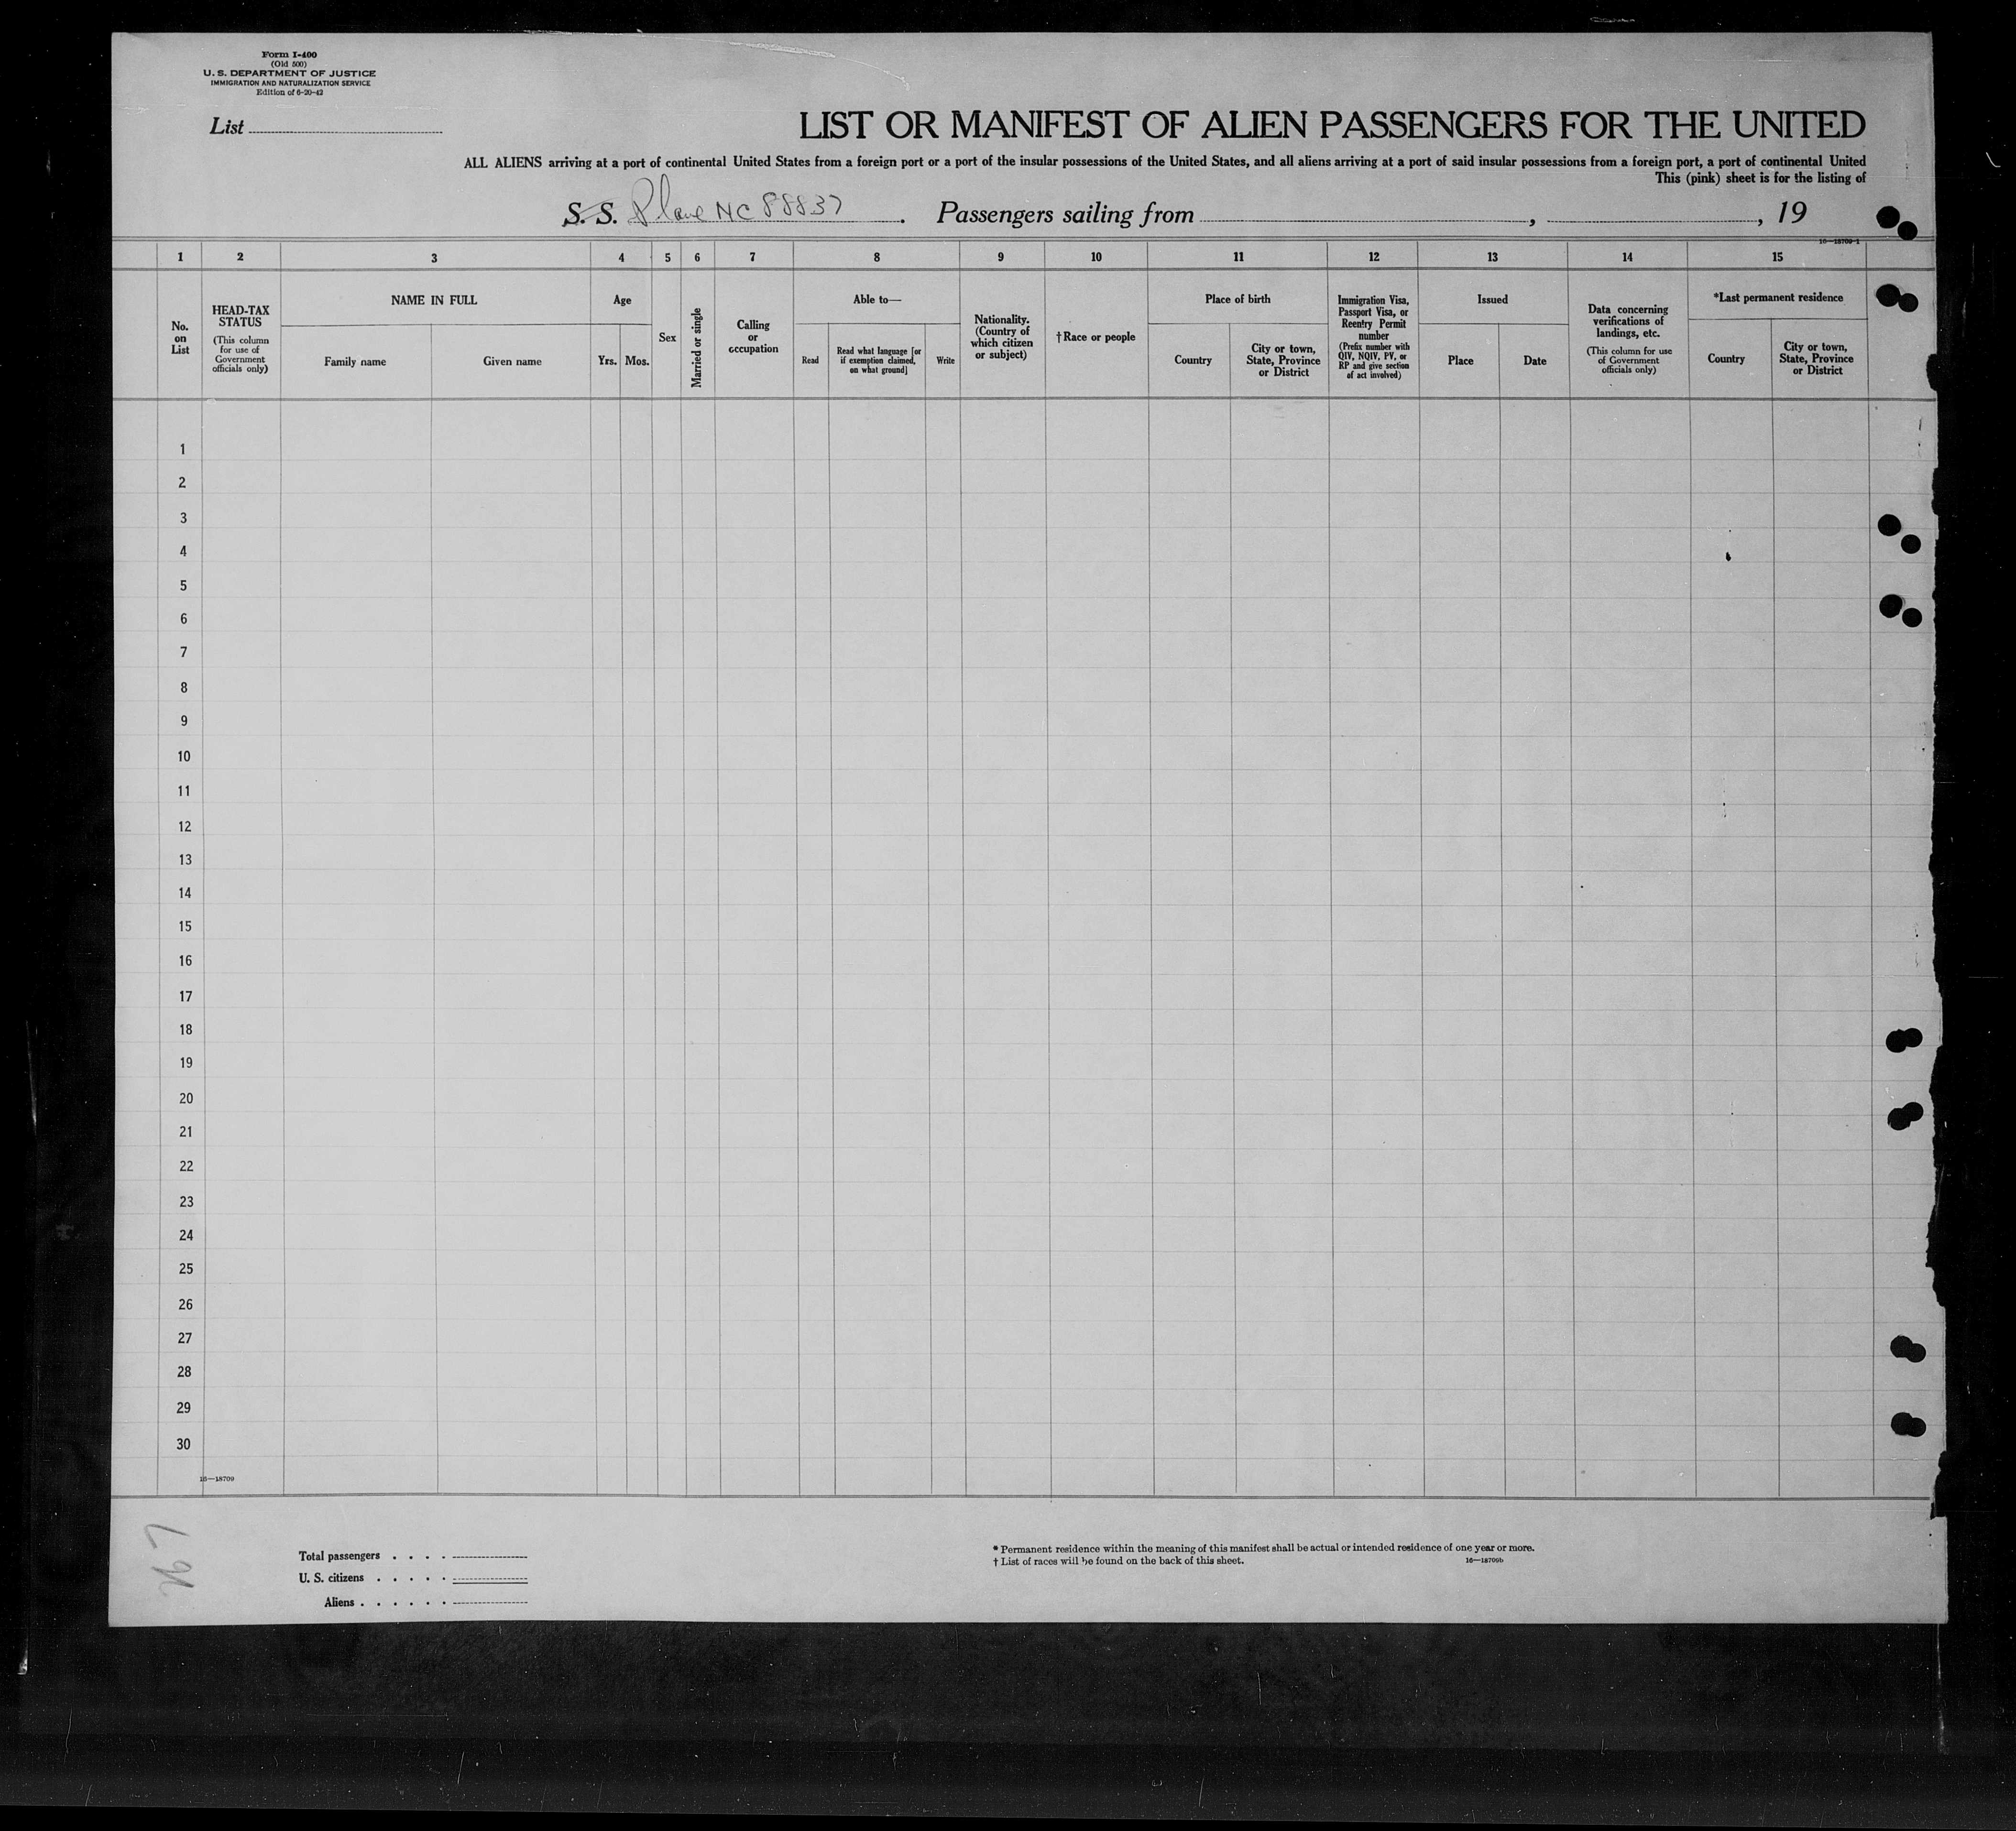 Form I-400
(Old 500)
U. S. DEPARTMENT OF JUSTICE
IMMIGRATION AND NATURALIZATION SERVICE
Edition of 6-20-42
List
LIST OR MANIFEST OF ALIEN PASSENGERS FOR THE UNITED
ALL ALIENS arriving at a port of continental United States from a foreign port or a port of the insular possessions of the United States, and all aliens arriving at a port of said insular possessions from a foreign port, a port of continental United
This (pink) sheet is for the listing of
S. S. Plane NC 88837. Passengers sailing from , , 19
16—18709-1
1 2 3 4 5 6 7 8 9 10 11 12 13 14 15
No.
on
List
HEAD-TAX
STATUS
(This column
for use of
Government
officials only)
NAME IN FULL
Family name
Given name
Age
Yrs.
Mos.
Sex
Married or single
Calling
or
occupation
Able to—
Read
Read what language [or
if exemption claimed,
on what ground]
Write
Nationality.
(Country of
which citizen
or subject)
†Race or people
Place of birth
Country
City or town,
State, Province
or District
Immigration Visa,
Passport Visa, or
Reentry Permit
number
(Prefix number with
QIV, NQIV, PV, or
RP and give section
of act involved)
Issued
Place
Date
Data concerning
verifications of
landings, etc.
(This column for use
of Government
officials only)
*Last permanent residence
Country
City or town,
State, Province
or District
1
2
3
4
5
6
7
8
9
10
11
12
13
14
15
16
17
18
19
20
21
22
23
24
25
26
27
28
29
30
16—18709
Total passengers . . . .
U. S. citizens . . . . .
Aliens . . . . . .
* Permanent residence within the meaning of this manifest shall be actual or intended residence of one year or more.
† List of races will be found on the back of this sheet.
16—18709b